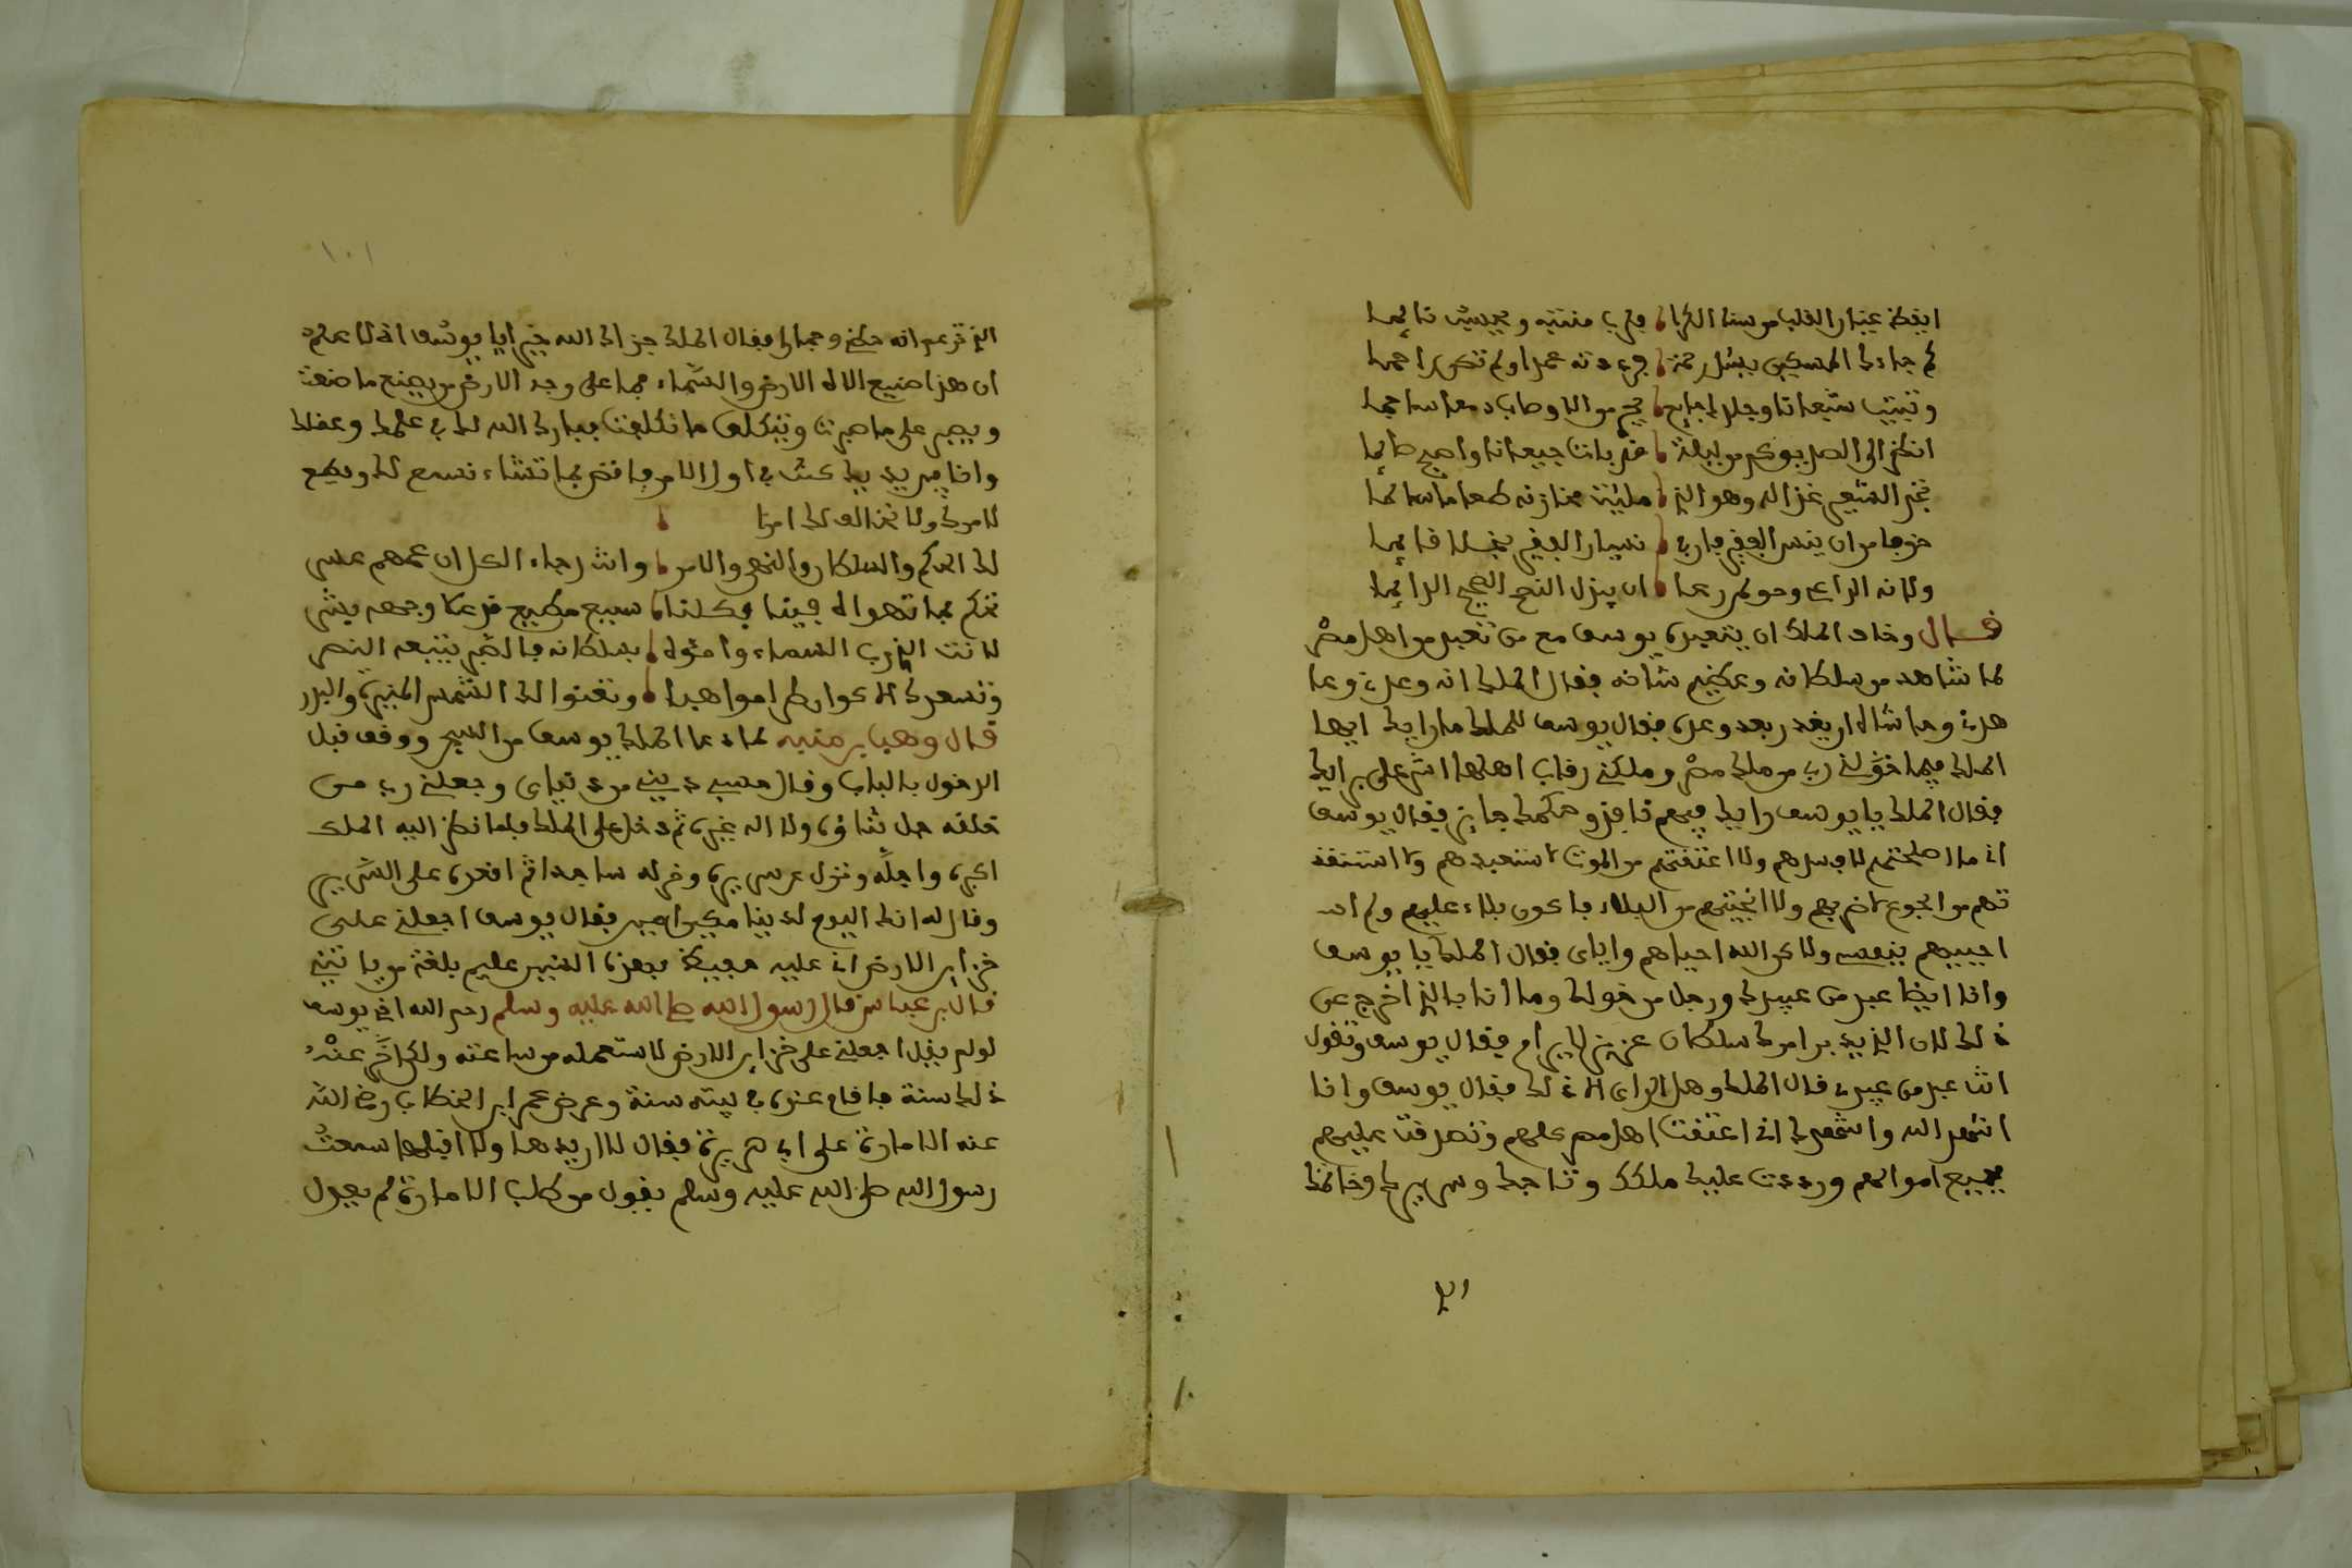 ايقظ عينا والقلب من سنا الكرا فترى منتبه ويحسبك نائما
لم جاءك المسكين يسئل رحمة فرددته عمدا ولم تك راحما
وتبيت شبعانا وجارك جايع
انظر الى الصديق كم من ليلة قد بات جيعانا واصبح صائما
خوفا من ان ينسى الفقير
ولانه الراعي وحق لمن رعا ان يبذل النصح الصحيح الدائما
قال وخاف الملك ان يتعبده يوسف مع من تعبد من اهل مصر
لما شاهد من سلطانه وعظيم شانه فقال الملك انه وعدني وعا
هدني وحاشاه ان يغدر بعد وعده فقال يوسف للملك ما رايك ايها
الملك فيما خوّلني ربي من ملك مصر وملكني رقاب اهلها اشر علي برايك
فقال الملك يا يوسف رايك فيهم نافذ وحكمك جايز فقال يوسف
اني ما اصلحتهم لافسدهم ولا اعتقتهم من الموت لاستعبدهم ولا استنقذ
تهم من الجوع لاضربهم ولا انجيتهم من البلاء فاكون بلاء عليهم ولم
احييهم بنفسي ولاكن الله احياهم واياي فقال الملك يا يوسف
وانا ايضا عبد من عبيدك ورجل من خولك وما انا بالذي اخرج عن
ذلك لان الذي يدبر امرك سلطان عزيز لا يرام فقال يوسف وتقول
انك عبد من عبيدي قال الملك وهل انا الا ذلك فقال يوسف وانا
اشهد الله واشهدك اني اعتقت اهل مصر كلهم وتصدقت عليهم
بجميع اموالهم ورددت عليك ملكك وتاجك وسريرك وخاتمك
١٠١
ان هذا صنيع الاه الارض والسماء فما على وجه الارض من يصنع ما صنعت
ويصبر على ما صبرت ويتكلف ما تكلفت فبارك الله لك في علمك وعقلك
وانا بين يديك كنت في اول الامر فاقض بما تشاء نسمع لك ونطيع
لامرك ولا نخالف لك امرا
لك الحكم والسلطان والنهي والامر وانت رجاء الكل ان عمهم عسر
تحكم بما تهواه فينا فكلنا سميع مطيع
لانت الذي رب السماء بسلطانه فالصبر يتبعه النصر
وتعنوا لك الشمس المنيرة والبدر
قال وهب بن منبه لما دعا الملك يوسف من السجن ووقف قبل
الدخول بالباب وقال حسبي ديني من دنياي وحسبي ربي من
خلقه جل ثناؤه ولا اله غيره ثم دخل على الملك فلما نظر اليه الملك
اكبره واجلّه ونزل عن سريره وخر له ساجدا ثم اقعده على السرير
وقال له انك اليوم لدينا مكين امين فقال يوسف اجعلني على
خزاين الارض اني حفيظ
قال ابن عباس قال رسول الله صلى الله عليه وسلم رحم الله اخي يوسف
لو لم يقل اجعلني على خزاين الارض لاستعمله من ساعته ولكن اخّر عنه
ذلك سنة فاقام عنده في بيته سنة وعرض عمر ابن الخطاب رضي الله
عنه الامارة على ابي هريرة فقال لا اريدها ولا اقبلها سمعت
رسول الله صلى الله عليه وسلم يقول من طلب الامارة لم يعدل